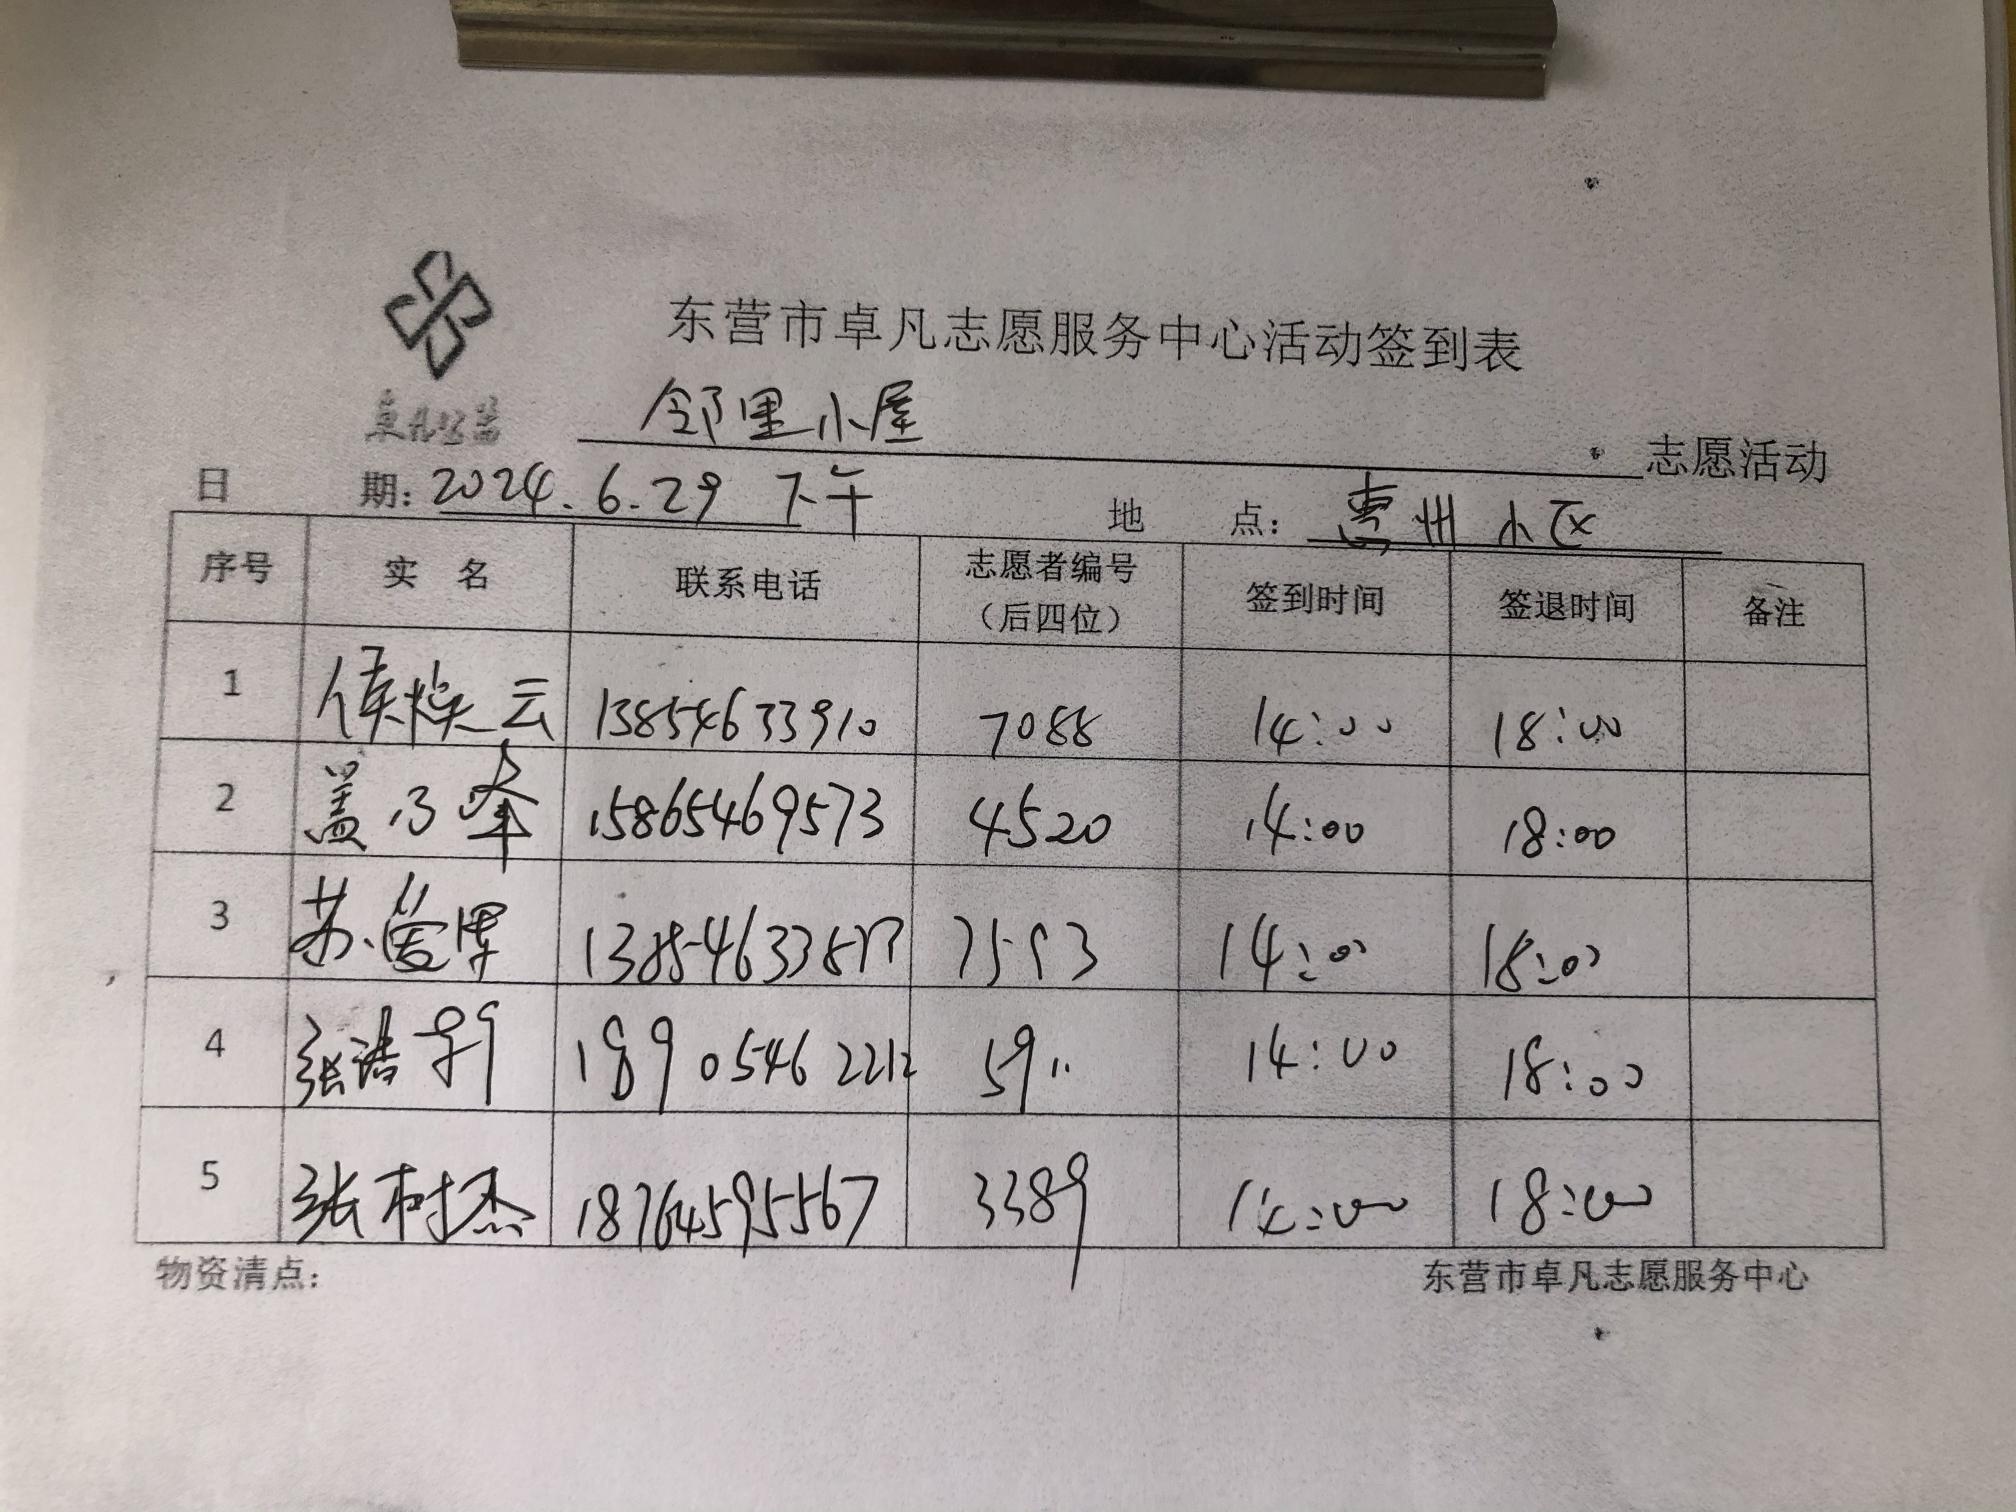 东营市卓凡志愿服务中心活动签到表
卓凡公益
邻里小屋 志愿活动
日 期: 2024.6.29 下午 地 点: 惠州小区
序号 实 名 联系电话 志愿者编号（后四位） 签到时间 签退时间 备注
1 侯焕云 13854633910 7088 14:00 18:00
2 盖乃峰 15865469573 4520 14:00 18:00
3 苏 138546338 14:00 18:00
4 张浩 18905462212 14:00 18:00
5 张树杰 18764595567 3389 14:00 18:00
物资清点: 东营市卓凡志愿服务中心